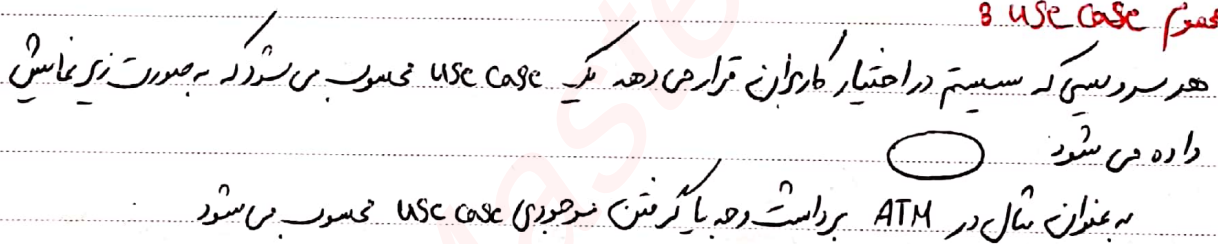 مفهوم use case :
هر سرویسی که سیستم در اختیار کاربران قرار می دهد یک use case محسوب می شود که به صورت زیر نمایش
داده می شود
به عنوان مثال در ATM برداشت وجه یا گرفتن موجودی use case محسوب می شود